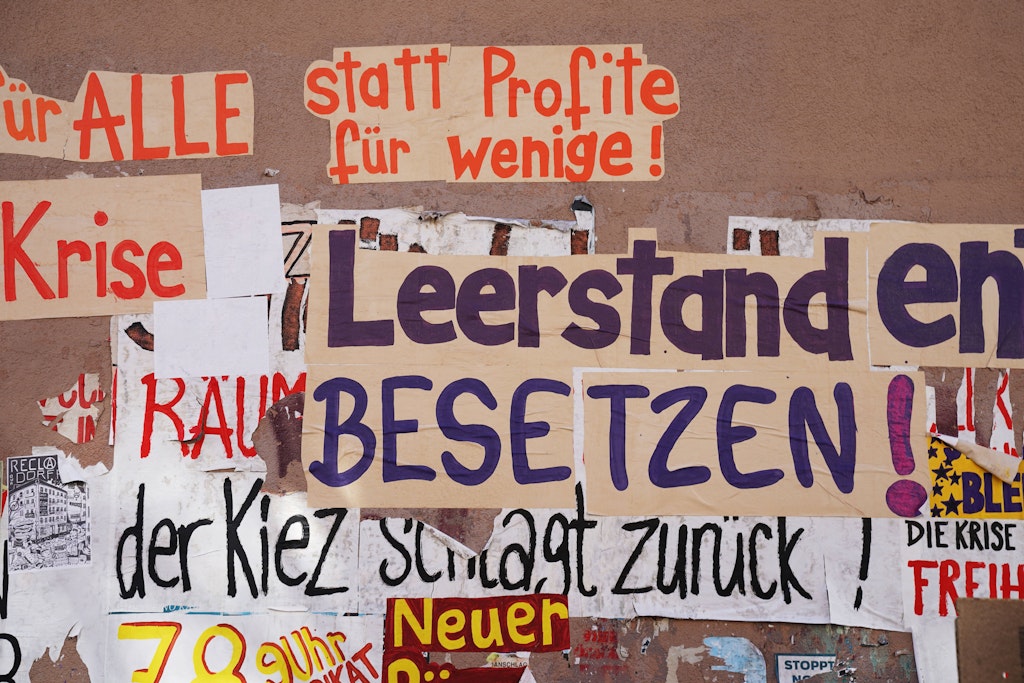 für ALLE
statt Profite
für wenige!
Krise
Leerstand en
BESETZEN!
RÄUM
RECLA
DORF
der Kiez schlägt zurück!
BLE
DIE KRISE
FREIH
78
9 Uhr
IKAT
Neuer
ANSCHLAG
STOPPT